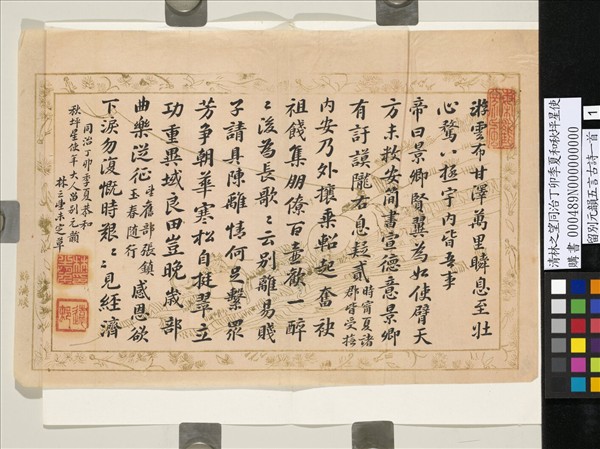 游雲布甘澤萬里瞬息至壯
心騖八極宇內皆吾事
帝曰景卿賢翼為如使臂天
方未敉安簡書宣德意景卿
有訏謨隴右息携貳時甯夏諸郡皆受撫
內安乃外攘乘軺起奮袂
祖餞集朋僚百壺歡一醉
〻後為長歌〻云別離易賤
子請具陳離情何足繫眾
芳爭朝華寒松自挺翠立
功重異域良田豈晚歲部
曲樂從征星使舊部張鎮玉春隨行感恩欲
下淚勿復慨時艱〻〻見經濟
同治丁卯季夏恭和
秋坪星使年大人留別元韻
林之望未定草
清林之望同治丁卯季夏和秋坪星使
留別元韻五言古詩一首
購書 0000489N000000000
1